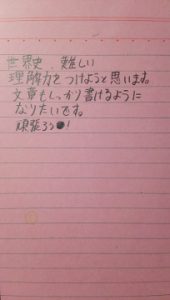 世界史 難しい
理解力をつけようと思います。
文章もしっかり書けるように
なりたいです。
頑張ろう!